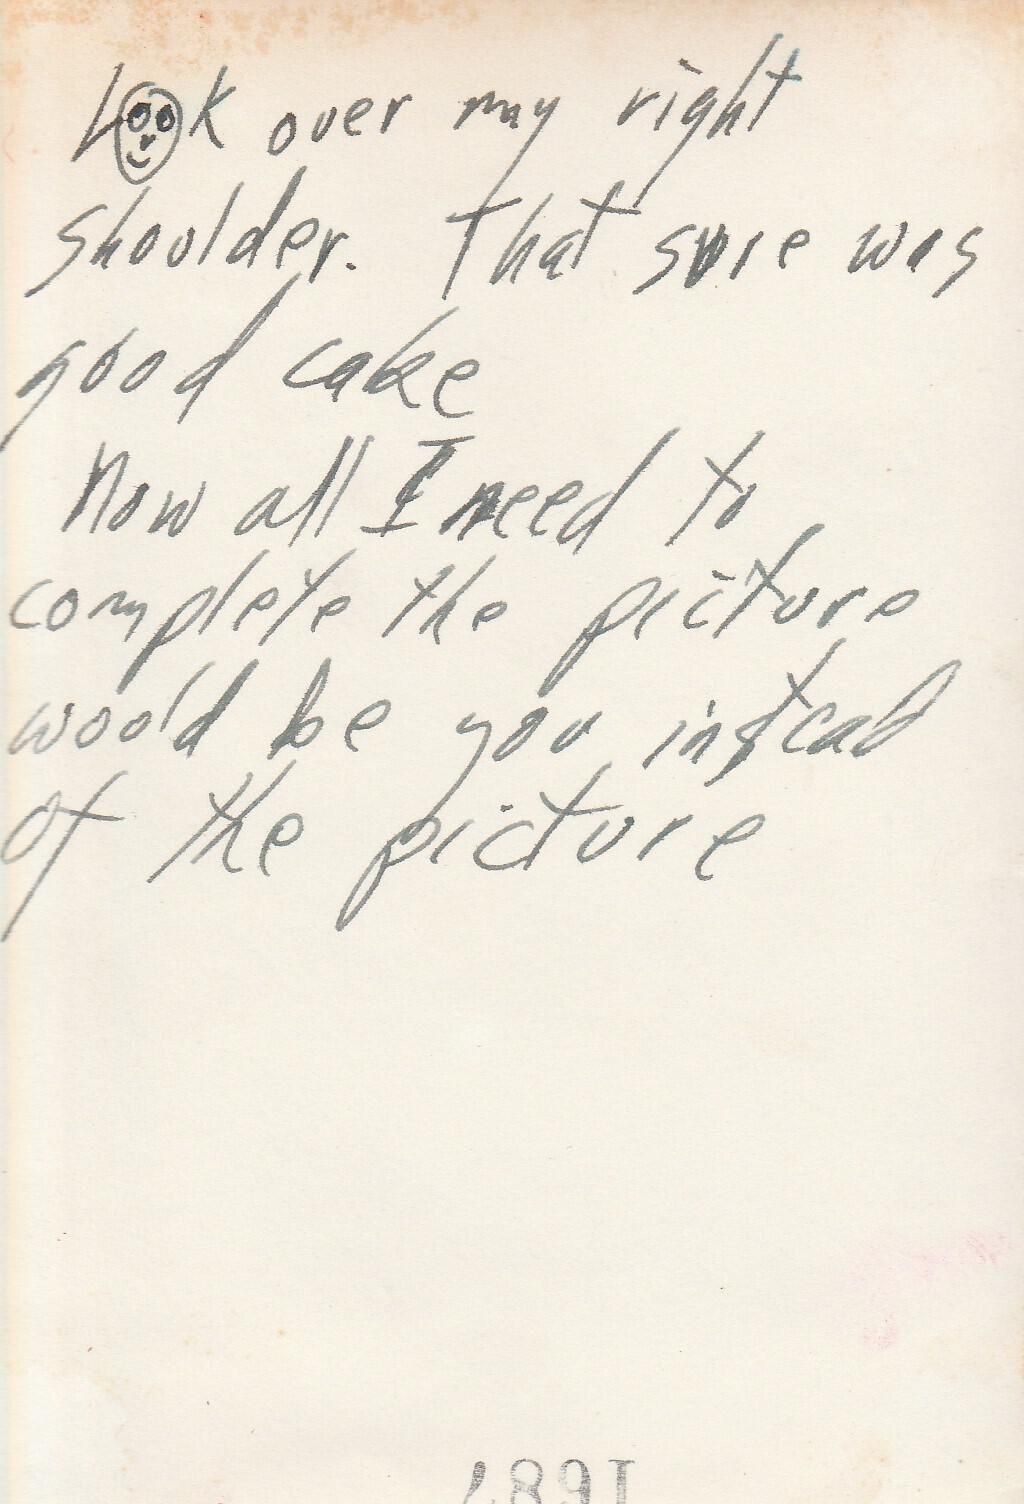 Look over my right
shoulder. That sure was
good cake
Now all I need to
complete the picture
would be you instead
of the picture
1687